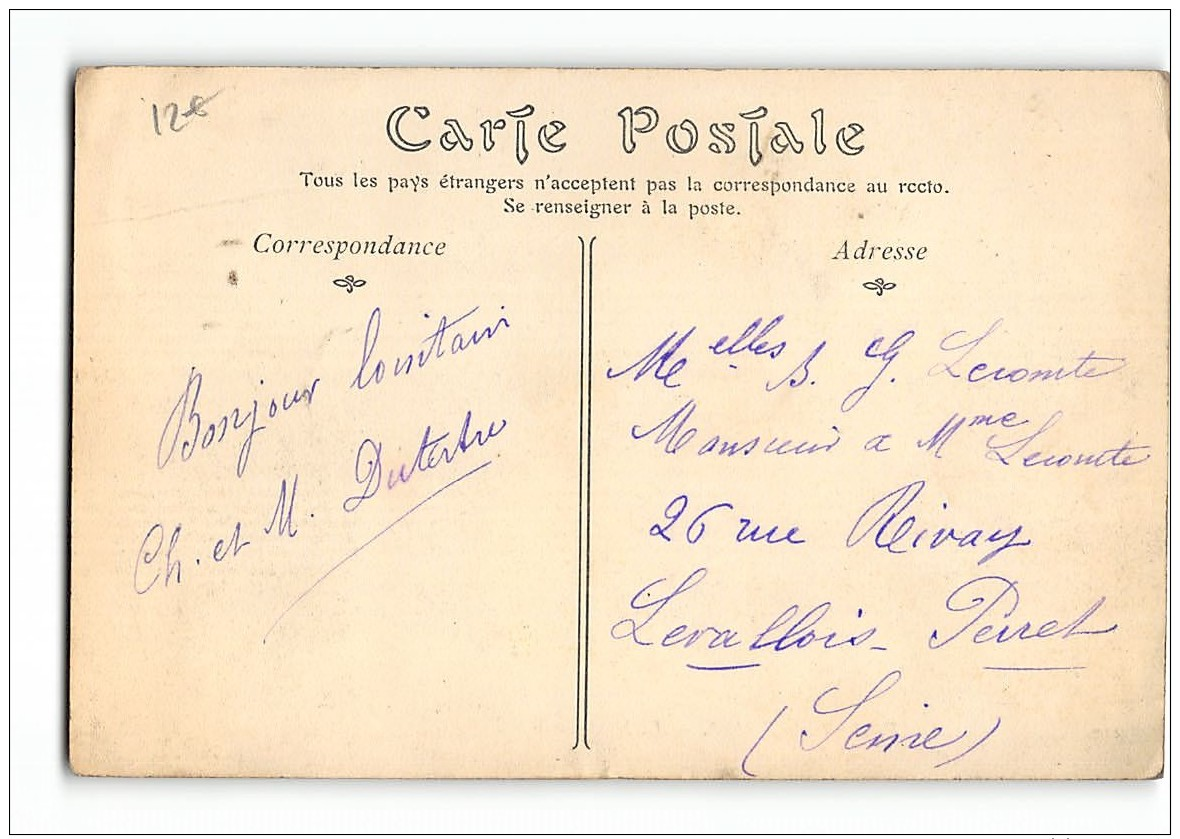 12€
Carte Postale
Tous les pays étrangers n'acceptent pas la correspondance au recto.
Se renseigner à la poste.
Correspondance
Bonjour lointain
Ch. et M. Dutertre
Adresse
Melles B. G. Lecomte
Monsieur & Mme Lecomte
26 rue Rivay
Levallois-Perret
(Seine)